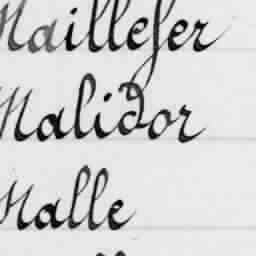 Maillefer
Malidor
Malle